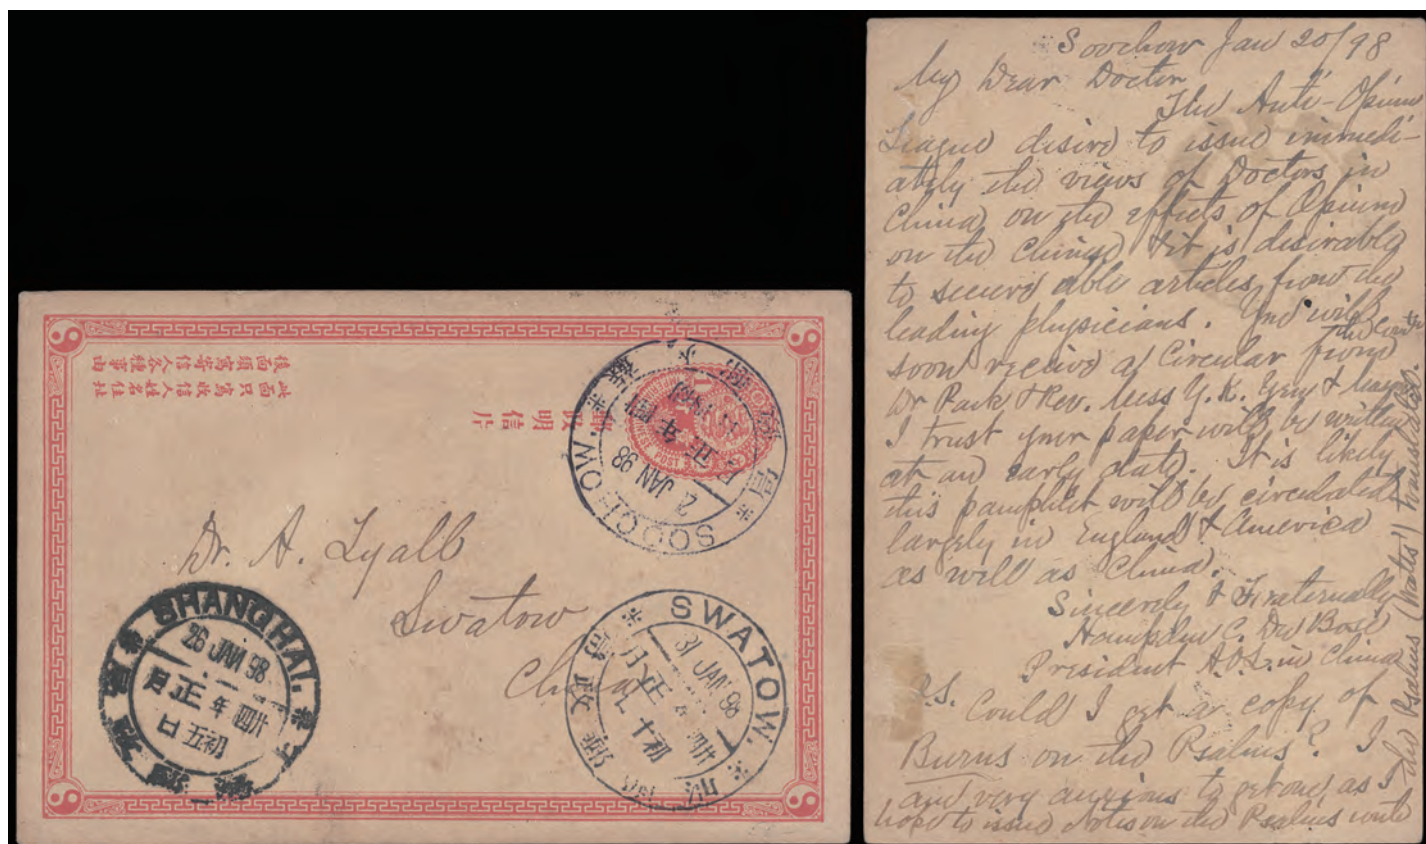 後面頭寫寄信人各種事由
此面只寫收信人姓名住址
郵政明信片
1
SOOCHOW.
2 JAN 98
Dr. A. Lyall
Swatow
China
SHANGHAI.
26 JAN 98
月正年四廿
日五初
SWATOW.
31 JAN 98
月正年四廿
十初
Soochow Jan 20/98
My Dear Doctor
The Anti-Opium
League desire to issue immedi-
ately the views of Doctors in
China on the effects of Opium
on the Chinese & it is desirable
to secure able articles from the
leading physicians. You will
soon receive a Circular from
Dr Park & Rev. Mess Y. K. Yen &
I trust your paper will be written
at an early date. It is likely
this pamphlet will be circulated
largely in England & America
as well as China.
Sincerely & Fraternally
Hampden C. Du Bose
President A.O.L. in China
P.S. Could I get a copy of
Burns on the Psalms? I
am very anxious to get one, as I
hope to issue Notes on the Psalms with
the Psalms (Watts') translated.